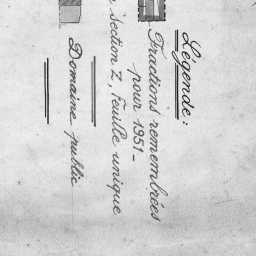 Légende:
Fractions remembrées
pour 1951_
Section Z, feuille unique
Domaine public